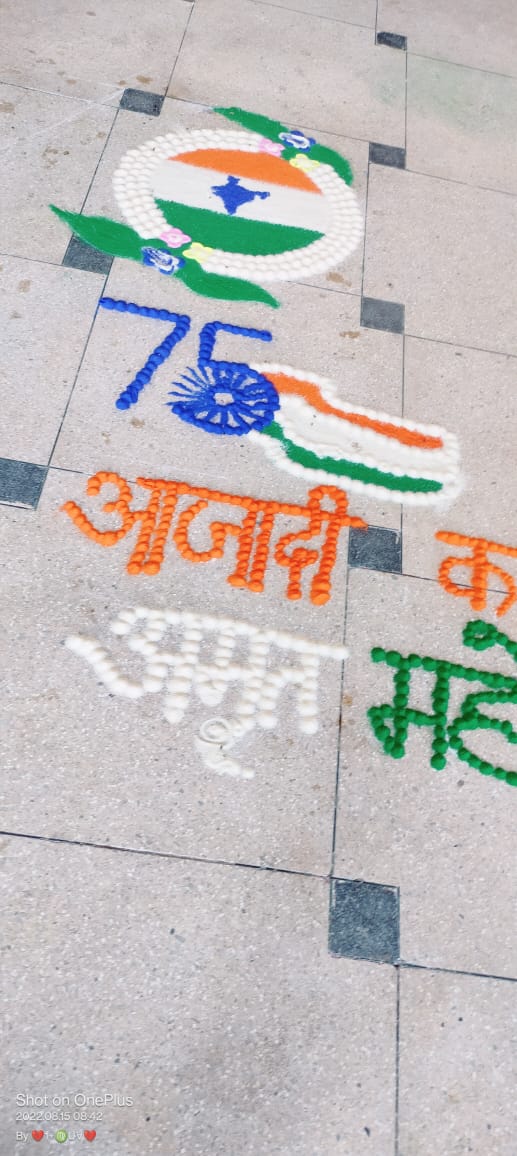 75
आज़ादी का
अमृत महो
Shot on OnePlus
2022.08.15 08:42
By